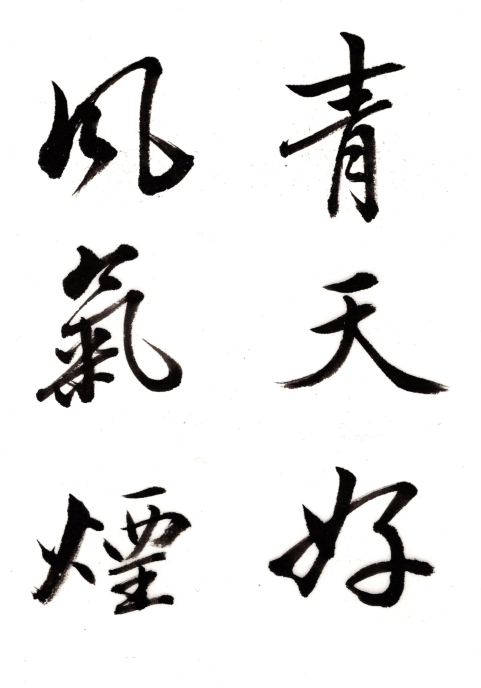 青天好
風氣煙